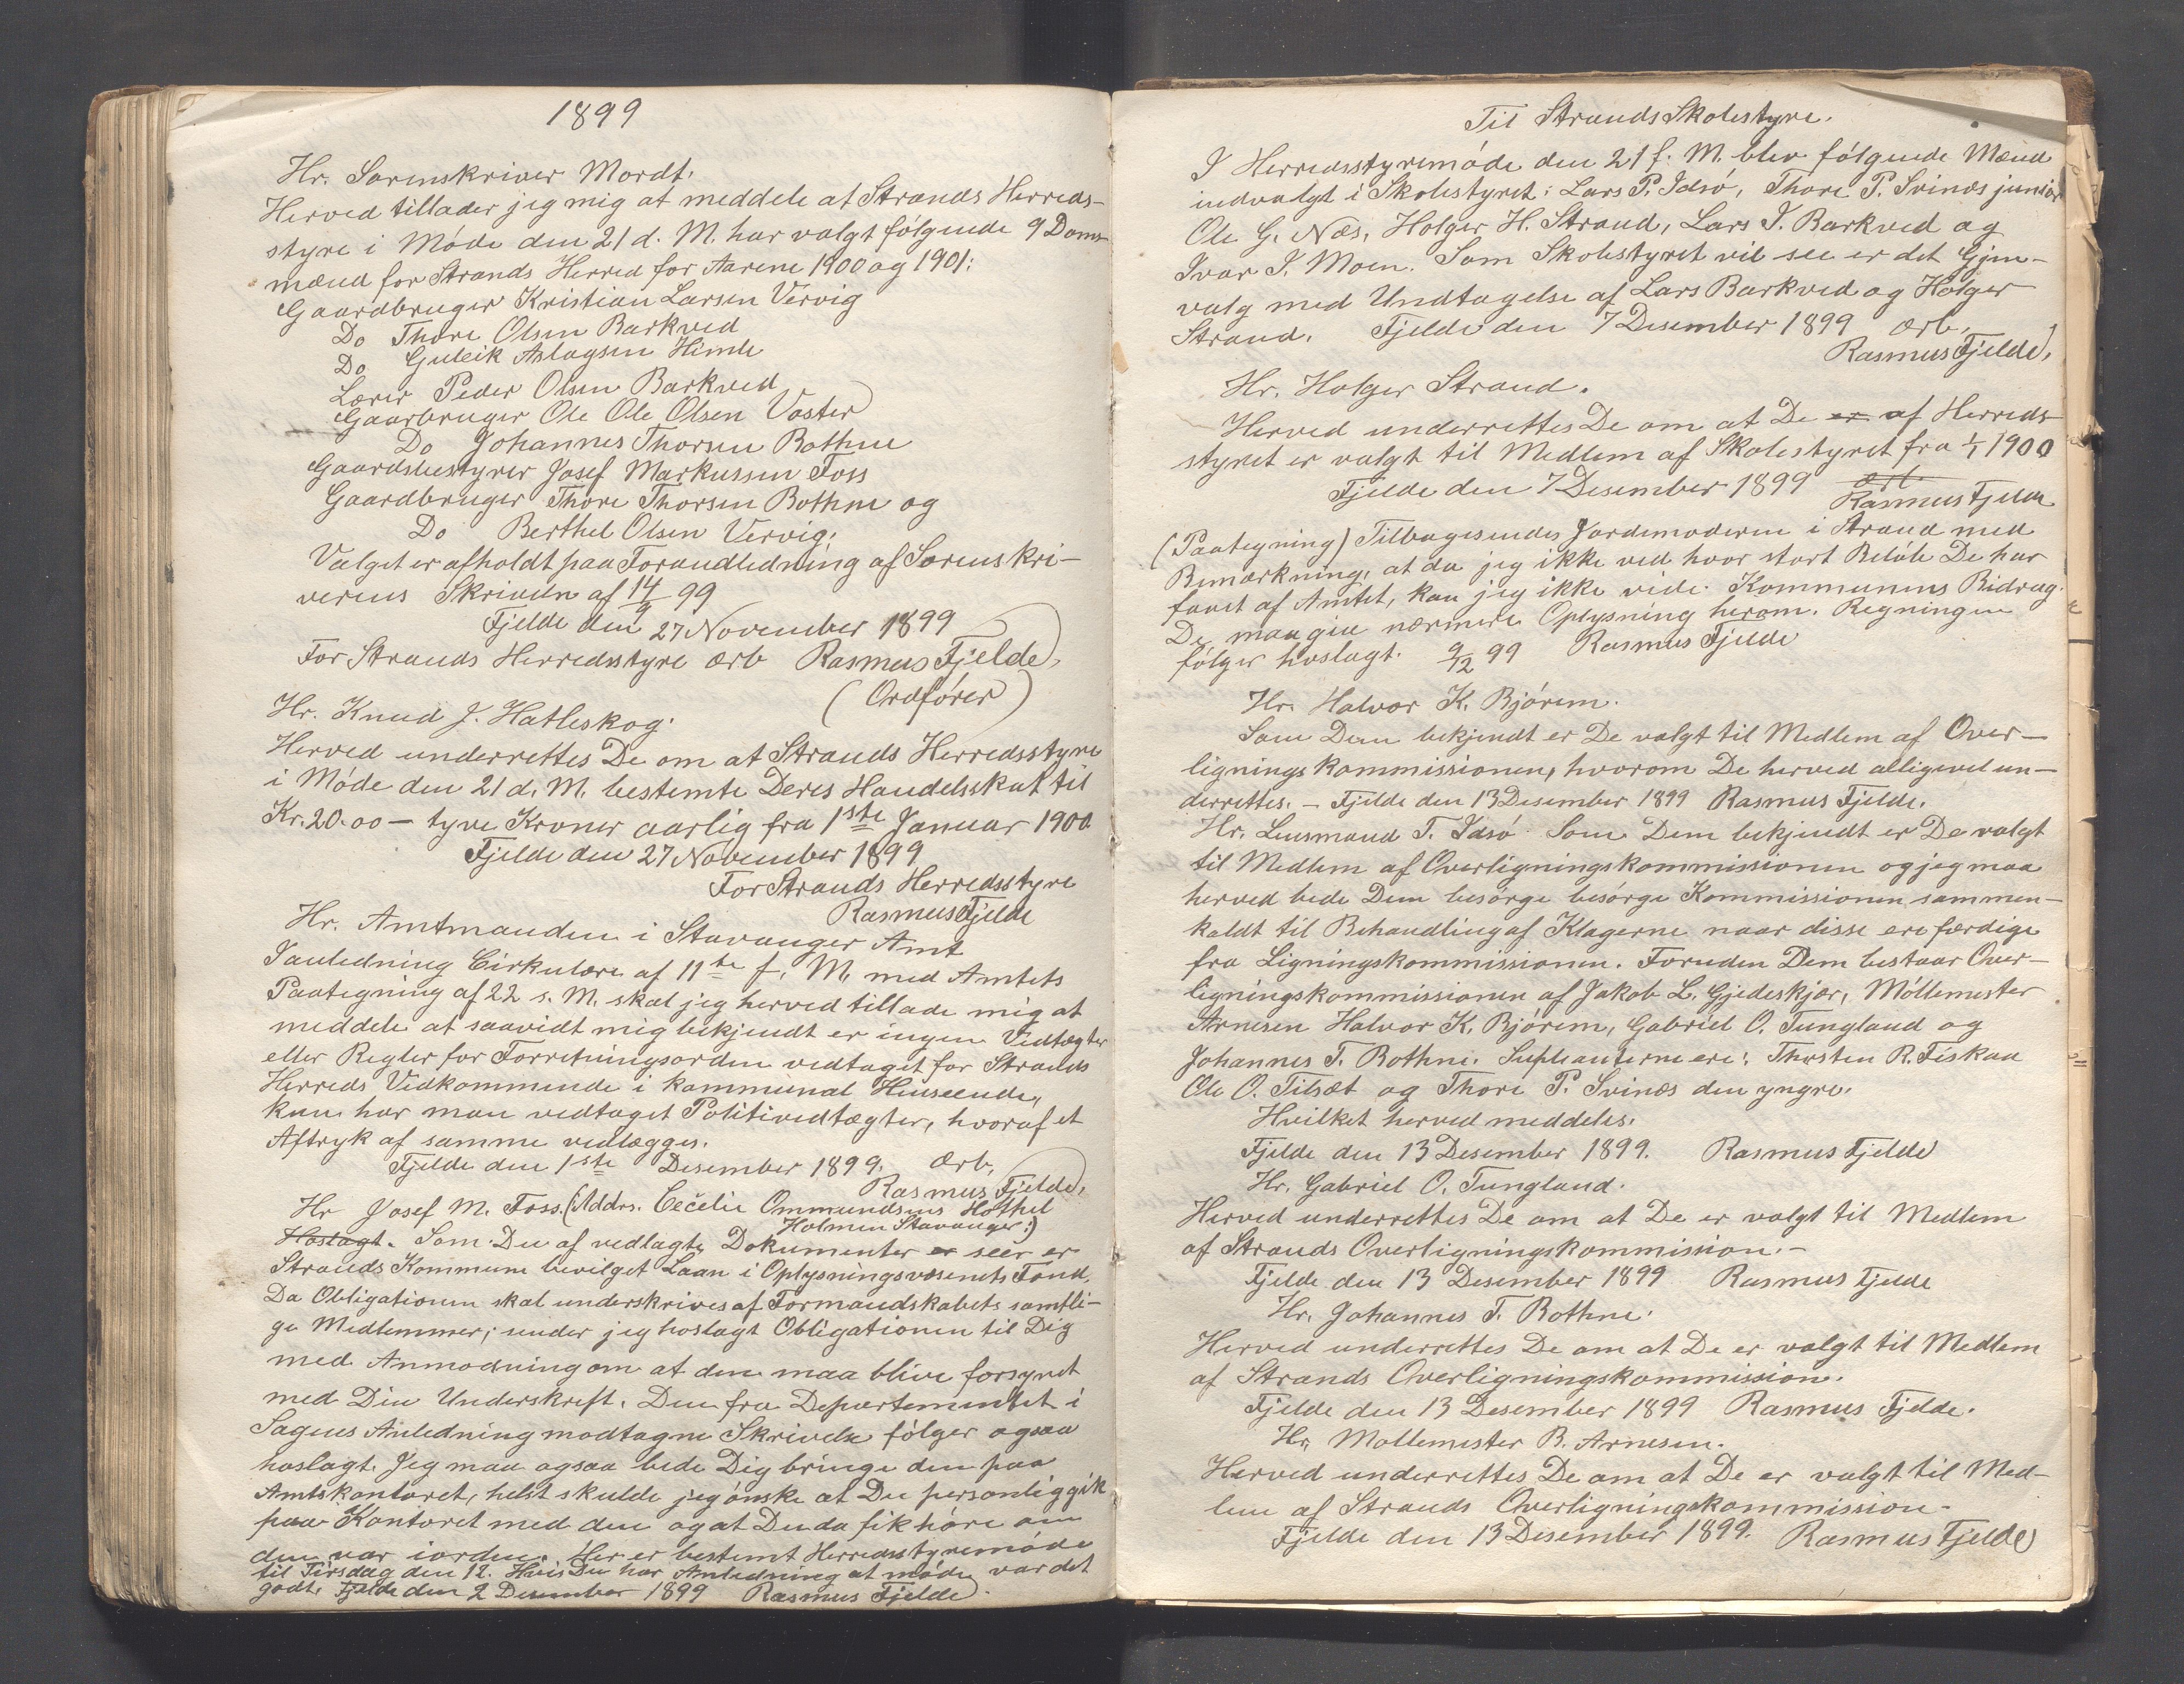 1899
Hr. Sorenskriver Mordt.
Herved tillader jeg mig at meddele at Strands Herreds-
styre i Möde den 21 d. M. har valgt fölgende 9 Doms-
mænd for Strands Herred for Aarene 1900 og 1901:
Gaardbruger Kristian Larsen Vervig
Do Thore Olsen Barkved
Do Guleik Aslagsen Himle
Lærer Peder Olsen Barkved
Gaarbruger Ole Ole Olsen Voster
Do Johannes Thorsen Bothne
Gaardsbestyrer Josef Markussen Foss
Gaardbruger Thore Thorsen Bothne og
Do Berthel Olsen Vervig.
Valget er afholdt paa Foranledning af Sorenskri-
verens Skrivelse af 14/9 99
Fjelde den 27 November 1899
For Strands Herredsstyre ærb Rasmus Fjelde,
(Ordförer)
Hr. Knud J. Hatleskog.
Herved underrettes De om at Strands Herredsstyre
i Möde den 21 d. M. bestemte Deres Handelsskat til
Kr. 20.00 — tyve Kroner aarlig fra 1ste Januar 1900
Fjelde den 27 November 1899
For Strands Herredsstyre
Rasmus Fjelde
Hr. Amtmanden i Stavanger Amt
I anledning Cirkulære af 11te f. M. med Amtets
Paategning af 22 s. M. skal jeg herved tillade mig at
meddele at saavidt mig bekjendt er ingen Vedtægter
eller Regler for Forretningsorden vedtaget for Strands
Herreds Vedkommende i kommunal Henseende,
kun har man vedtaget Politivedtægter, hvoraf et
Aftryk af samme vedlægges.
Fjelde den 1ste Desember 1899. Ærb,
Rasmus Fjelde,
Hr Josef M. Foss. (Addrs. Cecelie Ommundsens Hothel
Holmen Stavanger:)
Hoslagt. Som Du af vedlagte Dokumenter er seer er
Strands Kommune bevilget Laan i Oplysningsvæsenets Fond.
Da Obligationen skal underskrives af Formandskabets samtli-
ge Medlemmer; sender jeg hoslagt Obligationen til Dig
med Anmodning om at den maa blive forsynet
med Din Underskrift. Den fra Departementet i
Sagens Anledning modtagne Skrivelse fölger ogsaa
hoslagt. Jeg maa ogsaa bede Dig bringe den paa
Amtskontoret, helst skulde jeg önske at Du personlig gik
paa Kontoret med den og at Du da fik höre om
den var iorden. Her er bestemt Herredsstyremöde
til Tirsdag den 12. Hvis Du har Anledning at möde var det
godt. Fjelde den 2 Desember 1899 Rasmus Fjelde.
Til Strands Skolestyre.
I Herredsstyremöde den 21 f. M. blev fölgende Mænd
indvalgt i Skolestyret: Lars P. Idsö, Thore P. Svines junior
Ole G. Næs, Holger H. Strand, Lars T. Barkved og
Ivar I. Moen. Som Skolestyret vil see er det Gjen-
valg med Undtagelse af Lars Barkved og Holger
Strand. Fjelde den 7 Desember 1899 ærb,
Rasmus Fjelde,
Hr. Holger Strand.
Herved underrettes De om at De er af Herreds
styret er valgt til Medlem af Skolestyret fra 1/1 1900
Fjelde den 7 Desember 1899 ærb
Rasmus Fjelde
(Paategning) Tilbagesendes Jordemoderen i Strand med
Bemærkning, at da jeg ikke ved hvor stort Belöb De har
faaet af Amtet, kan jeg ikke vide Kommunens Bidrag.
De maa give nærmere Oplysning herom. Regningen
fölger hoslagt. 9/12 99 Rasmus Fjelde
Hr. Halvor K. Bjórem.
Som Dem bekjendt er De valgt til Medlem af Over-
ligningskommissionen, hvorom De herved alligevel un-
derrettes. – Fjelde den 13 Desember 1899 Rasmus Fjelde.
Hr. Lensmand T. Idsö. Som Dem bekjendt er De valgt
til Medlem af Overligningskommissionen og jeg maa
herved bede Dem besörge besörge Kommissionen sammen-
kaldt til Behandling af Klagerne naar disse ere færdige
fra Ligningskommissionen. Foruden Dem bestaar Over-
ligningskommissionen af Jakob L. Gjedeskjær, Möllemester
Arnesen Halvor K. Bjórem, Gabriel O. Tungland og
Johannes T. Bothne. Supleanterne ere: Thosten R. Fiskaa
Ole O. Tilsæt og Thore P. Svines den yngre.
Hvilket herved meddeles.
Fjelde den 13 Desember 1899. Rasmus Fjelde
Hr. Gabriel O. Tungland.
Herved underrettes De om at De er valgt til Medlem
af Strands Overligningskommission. –
Fjelde den 13 Desember 1899 Rasmus Fjelde
Hr. Johannes T. Bothne.
Herved underrettes De om at De er valgt til Medlem
af Strands Overligningskommission.
Fjelde den 13 Desember 1899 Rasmus Fjelde.
Hr. Mollemester B. Arnesen.
Herved underrettes De om at De er valgt til Med-
lem af Strands Overligningskommission.
Fjelde den 13 Desember 1899. Rasmus Fjelde